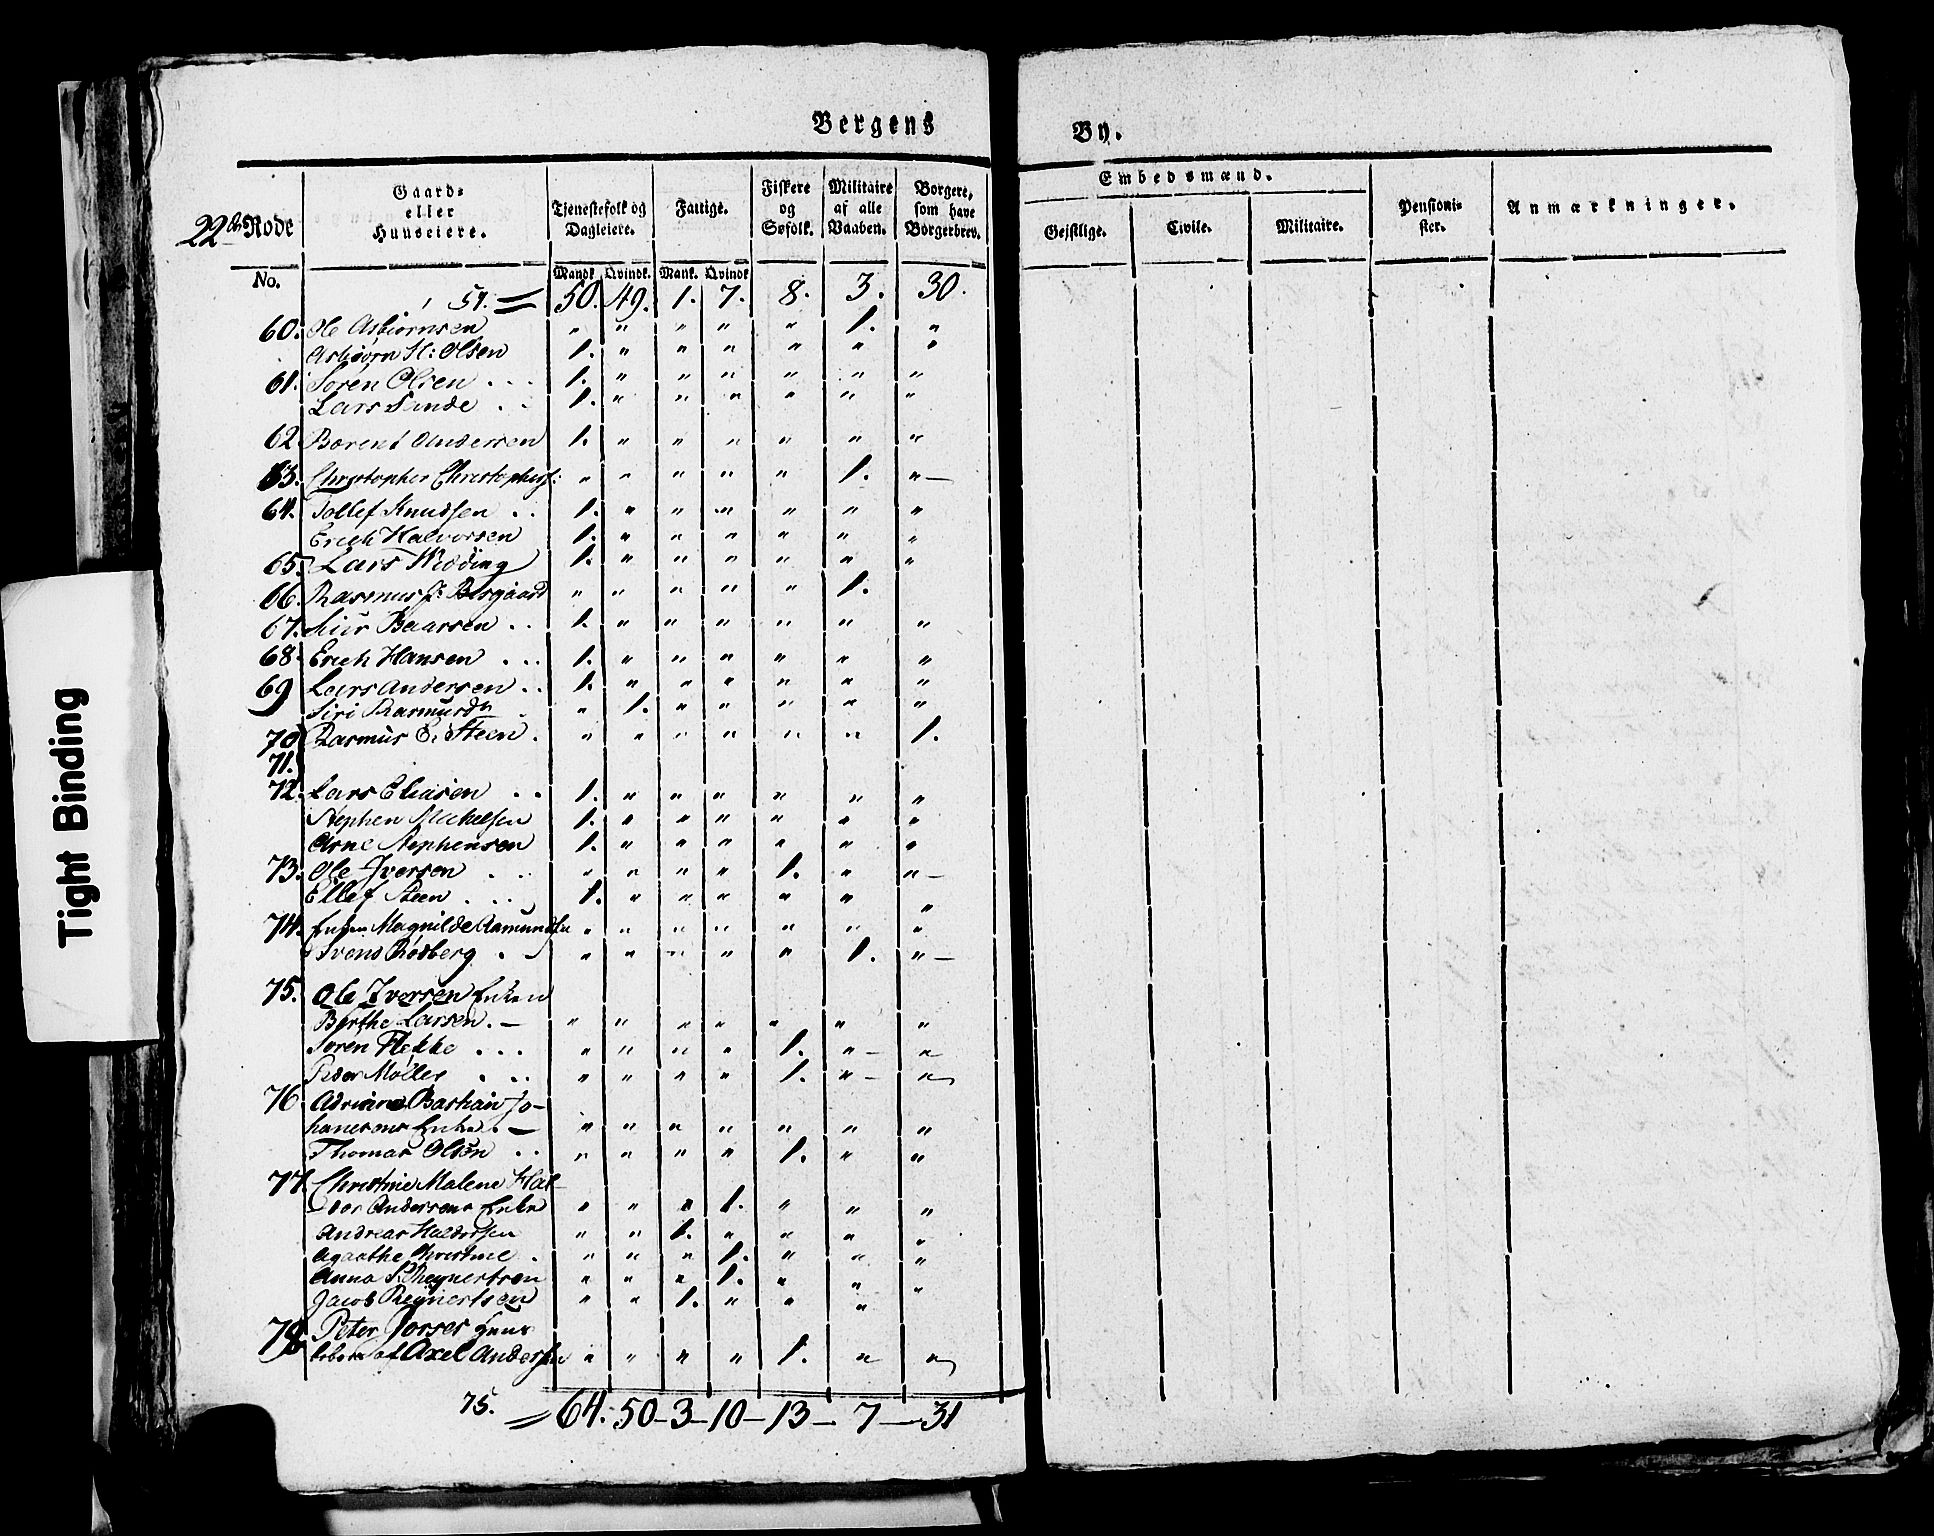 Bergens By.
22de Rode
Gaard-
eller
Huuseiere.
Tjenestefolk og
Dagleiere.
Fattige.
Fiskere
og
Søfolk.
Militaire
af alle
Vaaben.
Borgere,
som have
Borgerbrev.
Embedsmænd.
Gejstlige.
Civile.
Militaire.
Pensioni-
ster.
Anmærkninger.
No.
Mandk. Qvindk. Mank. Qvindk.
50. 49. 1. 7. 8. 3. 30.
60. Ole Asbiørnsen " " " " " 1. "
Asbiørn H: Olsen 1. " " " " " "
61. Søren Olsen . . . 1. " " " " " "
Lars Sunde . . 1. " " " " " "
62 Berent Andersen 1. " " " " " "
63. Christopher Christophers: " " " " " 1. " —
64. Tollef Knudsen . . 1. " " " " " "
Erich Halvorsen 1. " " " " " "
65. Lars Widding 1. " " " " " "
66. Rasmus J: " " " " " 1.
67. Baarsen . . 1. " " " " " "
68. Erich Hansen . . . 1. " " " " " "
69 Lars Andersen . . 1. " " " " " "
Siri Rasmusdr . " 1. " " " " "
70 Rasmus E. Steen . " " " " " " 1.
71.
72. Lars Eliasen . . 1. " " " " " "
Stephen Mickelsen 1. " " " " " "
Arne Stephensen 1. " " " " " "
73. Ole Iversen . . . " " " " 1. " " —
Ellef Steen . . . 1. " " " " " "
74. Enken Magnilde Aamundsen " " " " " " "
Svend Rødberg . " " " " " 1. " —
75. Ole Iversen Enken
Birthe Larsen. — " " " " " " "
Søren Flekke . . . " " " " 1. " — "
Peder Møller . . . " " " " 1. " — "
76. Adriane Bastian Jo-
hanesens Enke. — " " " " " " "
Thomas Olsen . . " " " " 1. " "
77. Christine Malene Hal-
vor Andersens Enke " " " 1. " " "
Andreas Haldorsen " " 1. " " " "
Agaathe Christine . " " " 1. " " "
Anna S. Reynertsen " " " 1. " " "
Jacob Reinertsen " " 1. " " " "
78. Peter Huus
beboes af Axel Andersen " " " " 1. " "
75. = 64. 50 — 3 — 10 — 13 — 7 — 31
Tight Binding